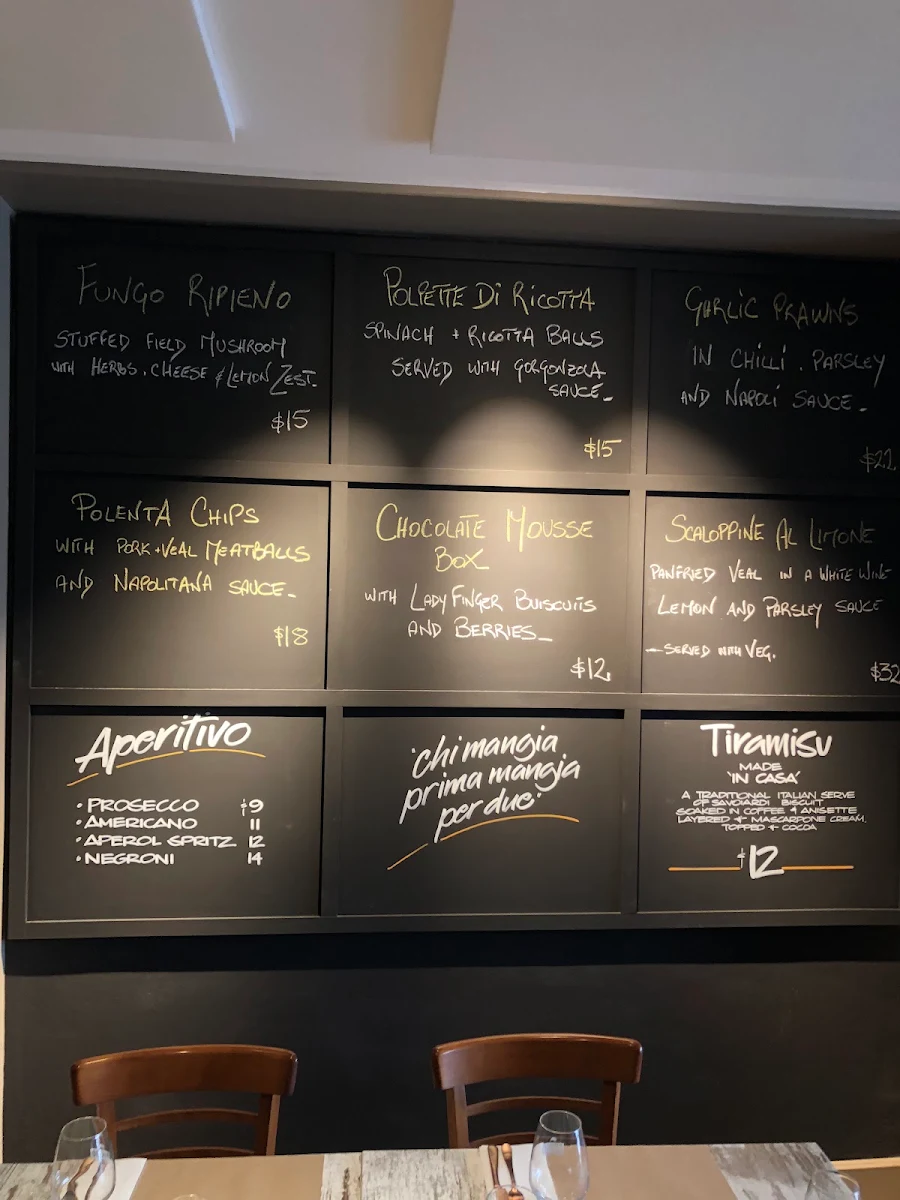 FUNGO RIPIENO
STUFFED FIELD MUSHROOM
WITH HERBS. CHEESE & LEMON ZEST.
$15
POLPETTE DI RICOTTA
SPINACH + RICOTTA BALLS
SERVED WITH GORGONZOLA
SAUCE_
$15
GARLIC PRAWNS
IN CHILLI. PARSLEY
AND NAPOLI SAUCE_
$22
POLENTA CHIPS
WITH PORK+VEAL MEATBALLS
AND NAPOLITANA SAUCE_
$18
CHOCOLATE MOUSSE
BOX
WITH LADY FINGER BUISCUITS
AND BERRIES_
$12
SCALOPPINE AL LIMONE
PANFRIED VEAL IN A WHITE WINE
LEMON AND PARSLEY SAUCE
- SERVED WITH VEG.
$32
Aperitivo
• PROSECCO $9
• AMERICANO 11
• APEROL SPRITZ 12
• NEGRONI 14
'chi mangia
prima mangia
per due'
Tiramisu
MADE
'IN CASA'
A TRADITIONAL ITALIAN SERVE
OF SAVOIARDI BISCUIT
SOAKED IN COFFEE & ANISETTE
LAYERED + MASCARPONE CREAM,
TOPPED + COCOA
$12